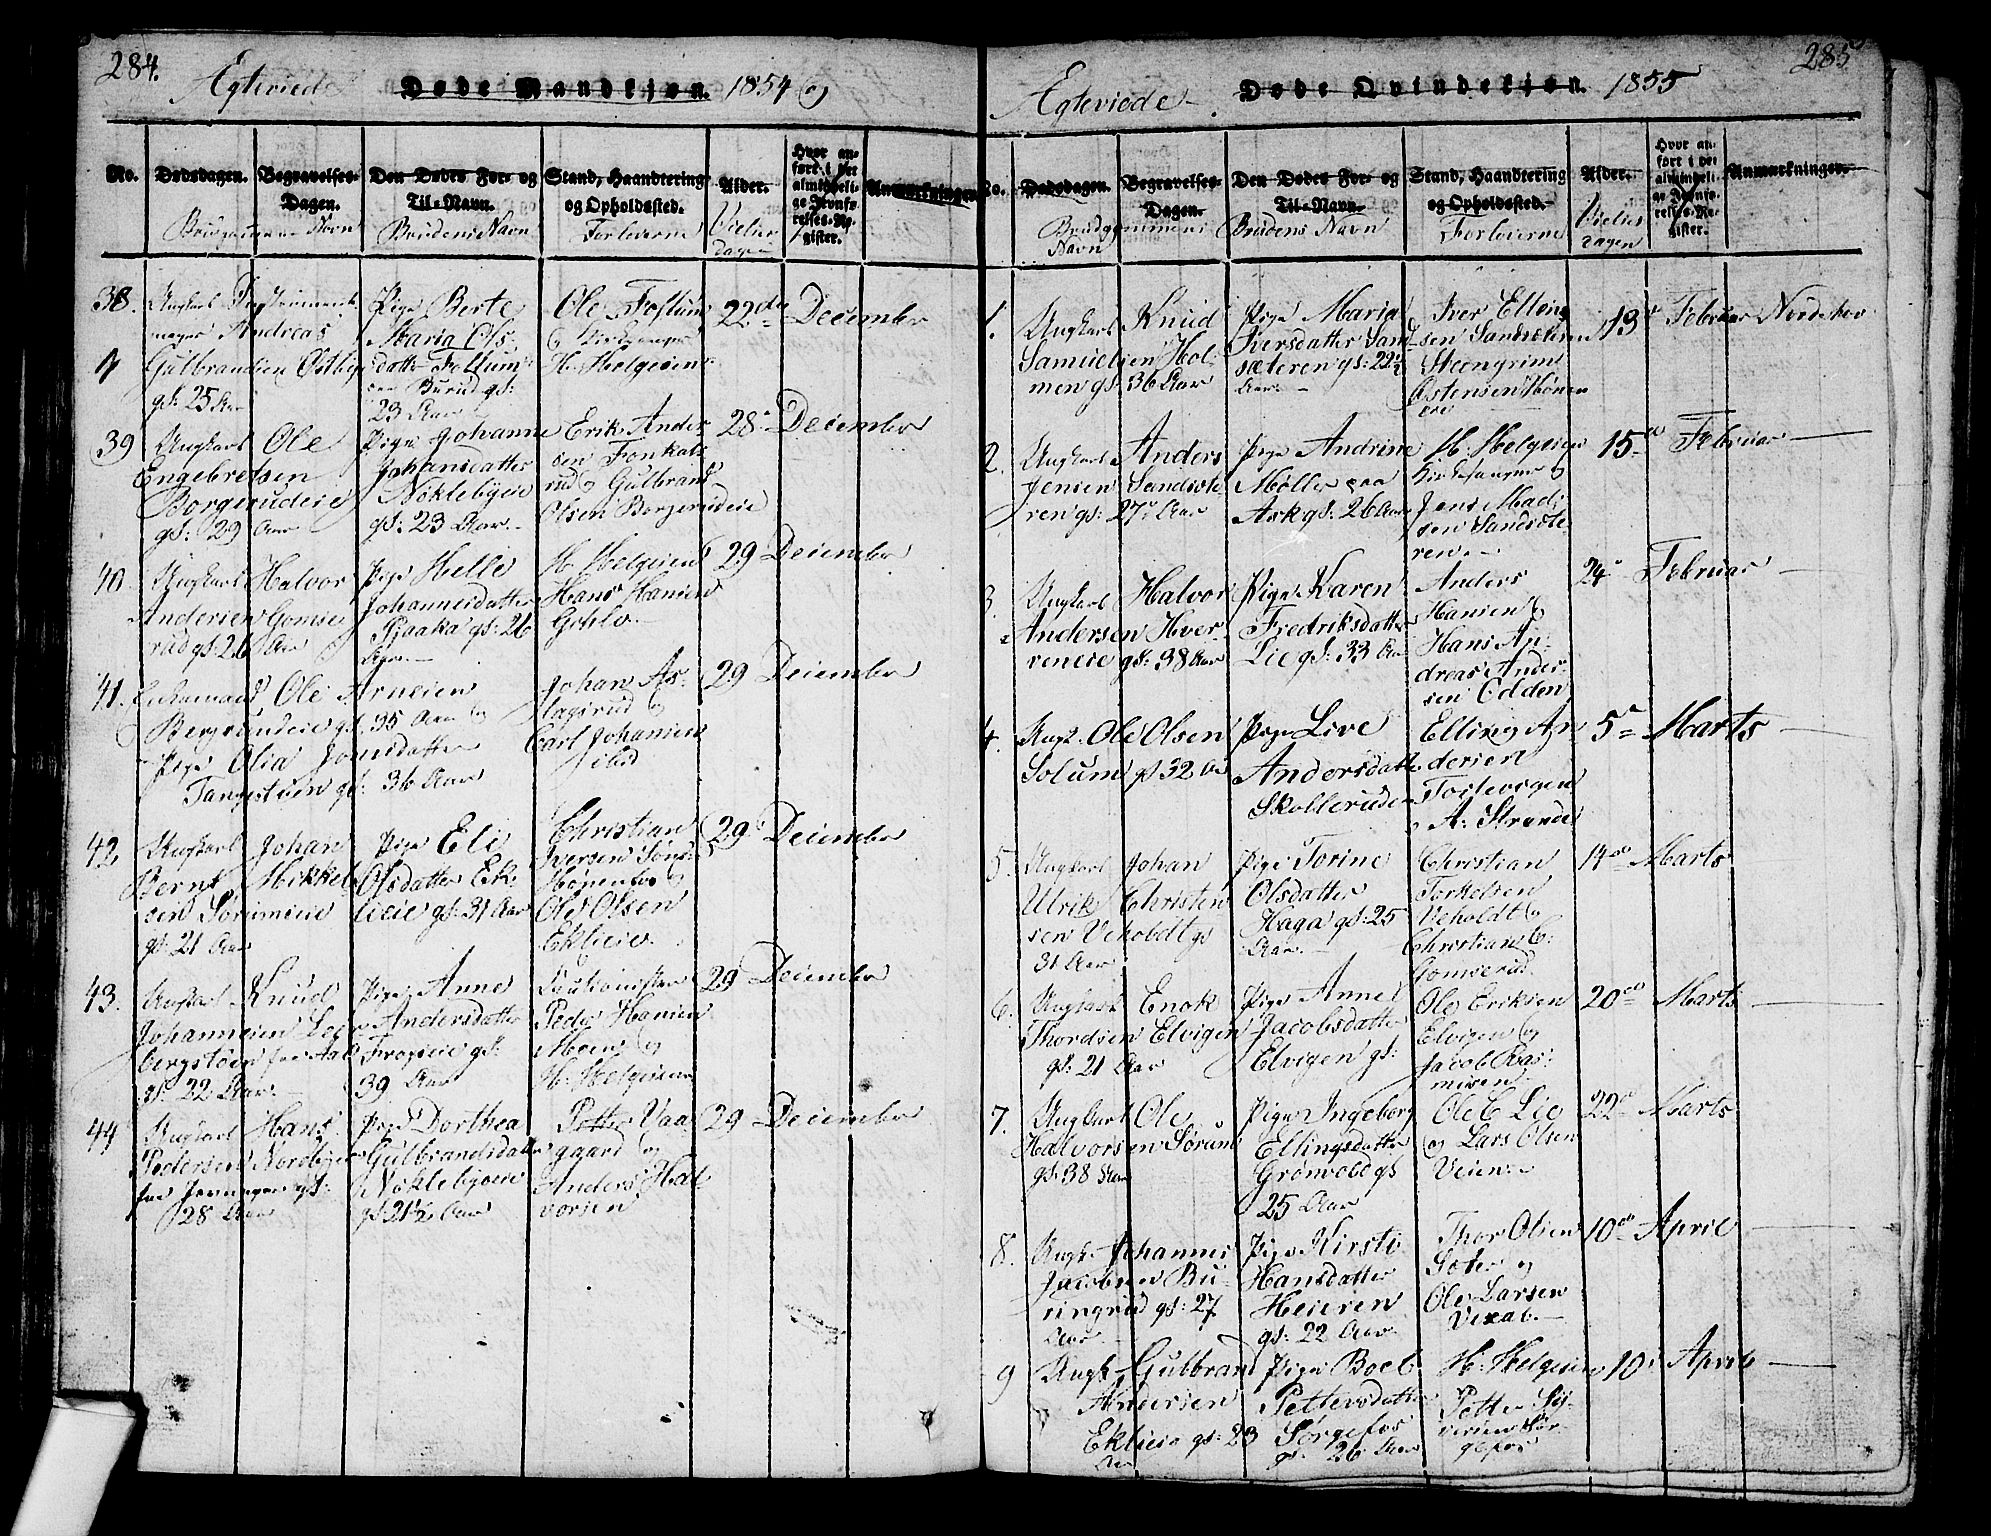 284.
Ægteviede
Døde Mandkjøn.
1854 og
No.
Dødsdagen.
Begravelses-
Dagen.
Den Dødes For- og
Til-Navn.
Stand, Haandtering
og Opholdssted.
Alder.
Hvor an-
ført i det
almindeli-
ge Jevnfø-
relses-Re-
gister.
Anmærkninger
Brudgommens Navn
Brudens Navn
Forloverne
Vielses
dagen
38.
Ungkarl
Andreas
Gulbrandsen Østbye
gl: 25 Aar
Pige Berte
Maria Ols-
datter Follum
Burud gl:
23 Aar
Ole Follum
og Kirkesanger
H. Helgesen
22de December
39
Ungkarl Ole
Engebretsen
Borgerudeie
gl: 29 Aar
Pige Johanne
Johansdatter
Nøklebyeie
gl: 23 Aar
Erik Ander
sen Fonkals
rud og Gulbrand
Olsen Borgerudeie
28 December
40
Ungkarl Halvor
Andersen Gomse
rud gl: 26 Aar
Pige Helle
Johannesdatter
Pjaaka gl: 26
Aar
H. Helgesen
Hans Hansen
Gohlo
29 December
41.
Enkemand Ole Arnesen
Bergsundeie gl. 35 Aar og
Pige Olia Jonsdatter
Tangestuen gl. 36 Aar
Johan As-
lagsrud og
Carl Johansen
ibid
29 December
42
Ungkarl Johan
Bernt Mikkel
sen Sørumeie
gl 21 Aar
Pige Eli
Olsdatter Ek-
lieie gl: 31 Aar
Christian
Iversen Søns
Hønenbo og
Ole Olsen
Eklieie
29 December
43.
Ungkarl Knud
Johannesen Loe
bergstøen fra Aal
gl. 22 Aar
Pige Anne
Andersdatter
Frogseie gl.
39 Aar
Peder Hansen
Moen og
H. Helgesen
29 December
44
Ungkarl Hans
Pedersen Nordbye
fra Jevnager gl:
28 Aar
Pige Dorthea
Gulbrandsdatter
Nøklebyeie
gl: 21½ Aar
Petter Vaa
gaard og
Anders Hal
vorsen
29 December
285
Ægteviede
Døde Qvindekjøn.
1855
No.
Dødsdagen.
Begravelses-
Dagen.
Den Dødes For- og
Til-Navn.
Stand, Haandtering
og Opholdssted.
Alder.
Hvor an-
ført i det
almindeli-
ge Jevnfø-
relses-Re-
gister.
Anmærkninger.
Brudgommens
Navn
Brudens Navn
Forloverne
Vielses
dagen
1.
Ungkarl Knud
Samuelsen Hol-
men gl 36 Aar
Pige Maria
Iversdatter Sand
sæteren gl: 22½
Aar
Iver Elling
sen Sandsøteren
Steengrim
Østensen Hønen
13 Februar Norderhov
2.
Ungkarl Anders
Jensen Sandsøte
ren gl: 27 Aar
Pige Andrine
Møller paa
Ask gl: 26 Aar
H. Helgesen
Kirkesanger og
Jens Mad-
sen Sandsøte-
ren
15de Februar
3
Ungkarl Halvor
Andersen Hver-
veneie gl: 38 Aar
Pige Karen
Fredriksdatter
Lie gl: 33 Aar
Anders
Hansen og
Hans An-
dreas Ander-
sen Edden
24 Februar
4.
Ungk. Ole Olsen
Solum gl 32 Aar
Pige Live
Andersdatter
Skollerudeie
Elling An
dersen
A: Strande
5te Marts
5.
Ungkarl Johan
Ulrik Christen
sen Veholdt gl
31 Aar
Pige Torine
Olsdatter
Haga gl: 25
Aar.
Christian
Torkelsen
Veholdt og
Christian C:
Gomserud
14de Marts
6.
Ungkarl Enok
Thordsen Elvigen
gl: 21 Aar
Pige Anne
Jacobsdatter
Elvigen gl:
Ole Eriksen
Elvigen og
Jacob Ras-
musen
20de Marts
7.
Ungkarl Ole
Halvorsen Sørum
gl: 38 Aar
Pige Ingeborg
Ellingsdatter
Grønvold gl
25 Aar
Ole C Lie
og Lars Olsen
Veien
22de Marts
8.
Ungk. Johannes
Jacobsen Bu-
ringrud gl: 27
Aar
Pige Kirsti
Hansdatter
Heieren
gl: 22 Aar
Thor Olsen
Søter og
Ole Larsen
Vexal.
10de April
9
Ungk Gulbran
Andersen
Eklieie gl: 23
Aar
Pige Boel
Pettersdatter
Sørgefos
gl. 26 Aar
H. Helgesen
Petter Sy-
versen Sør-
gefos
10 April